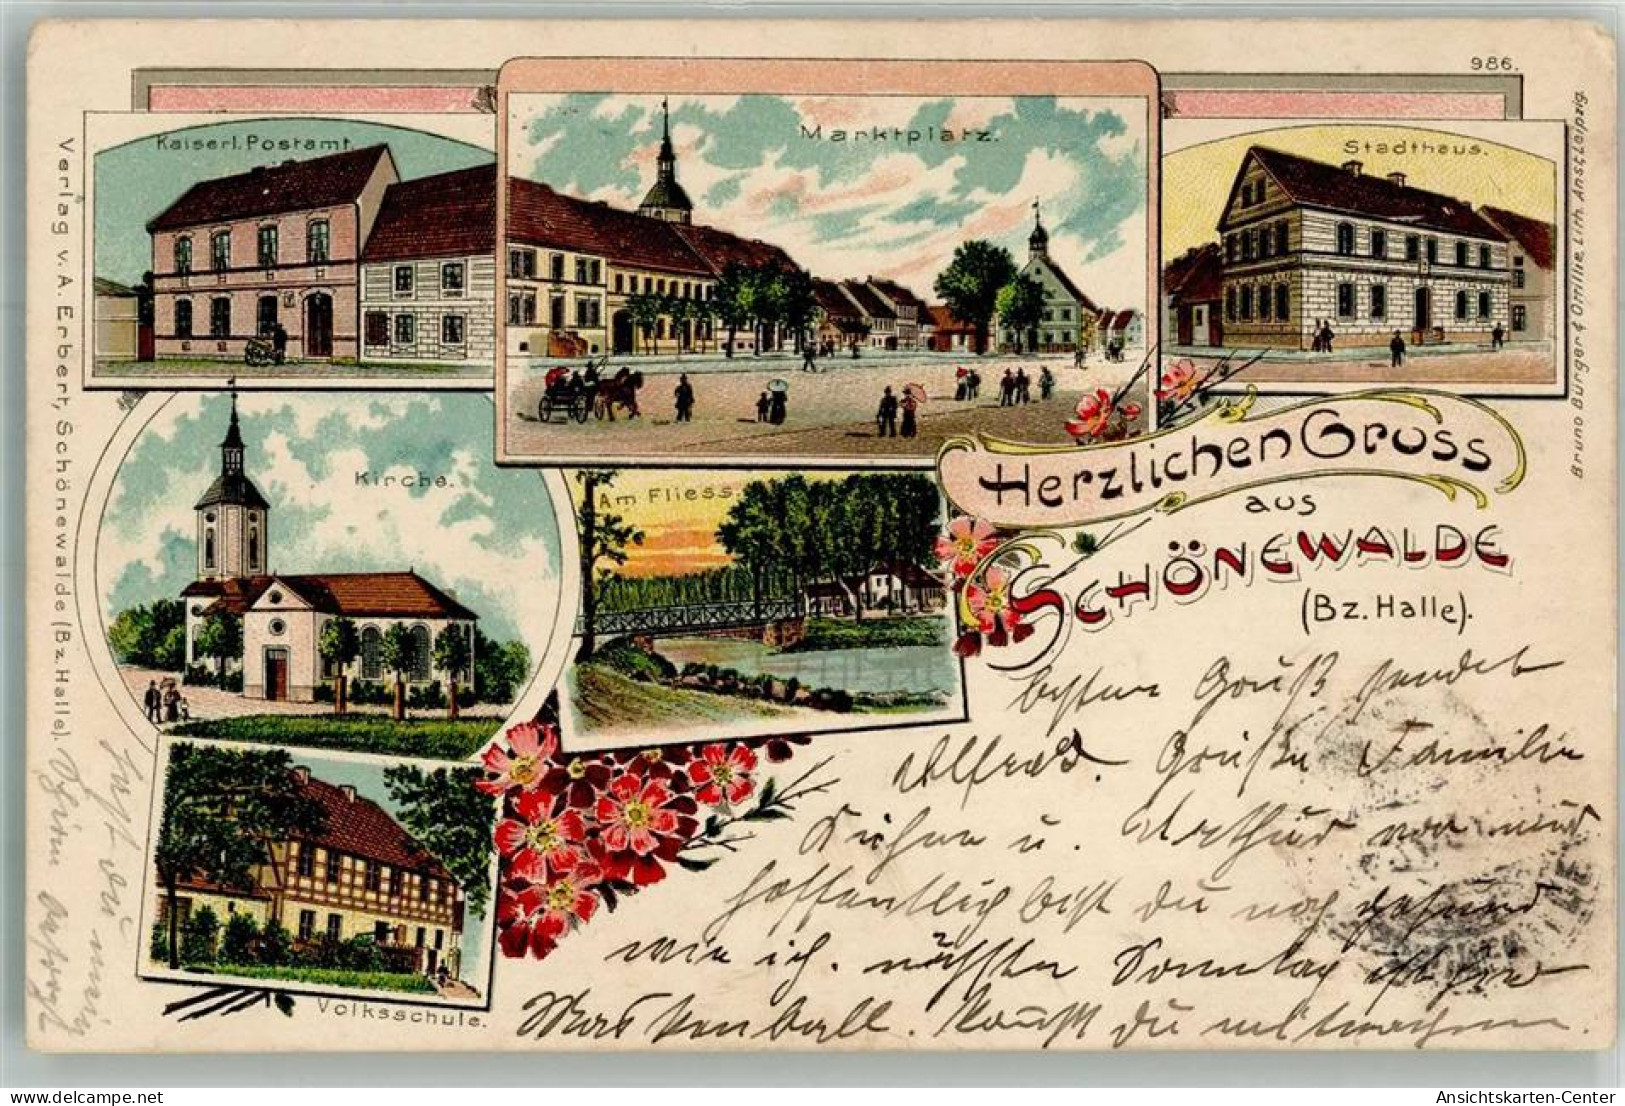 986.
Kaiserl. Postamt.
Marktplatz.
Stadthaus.
Kirche.
Am Fliess.
Volksschule.
Herzlichen Gruss
aus
SCHÖNEWALDE
(Bz. Halle).
Verlag v. A. Erbert, Schönewalde (Bz. Halle).
Bruno Bürger & Ottillie, Lith. Anst. Leipzig.
besten Gruß sendet
Alfred. Grüße Familie
Kühne u. Arthur von mir
hoffentlich bist Du noch gesund
wie ich. nächsten Sonntag ist hier
Maskenball. Kannst Du mitmachen.
hast du mein
oldthing
Ansichtskarten-Center